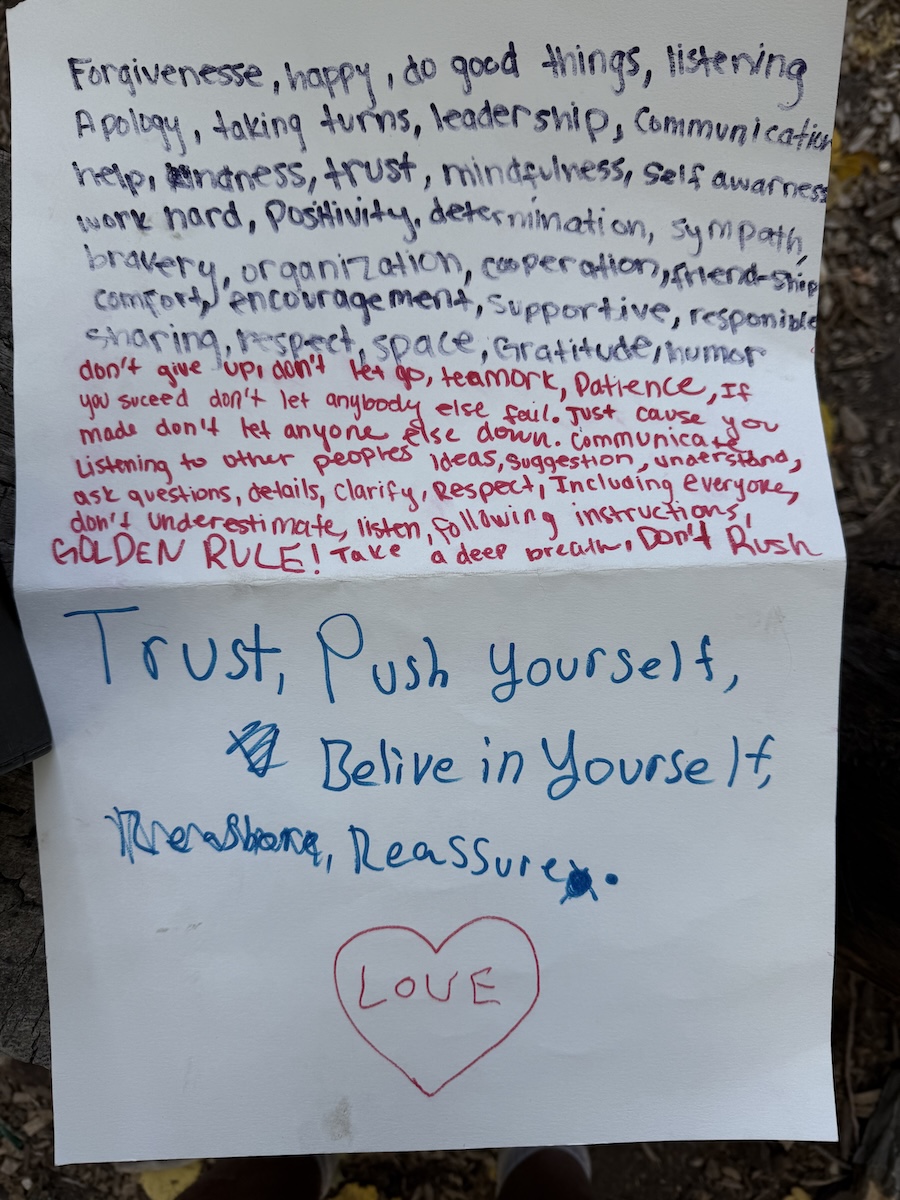 Forgivenesse, happy, do good things, listening
Apology, taking turns, leadership, Communication
help, kindness, trust, mindfulness, Self awarness
work hard, Positivity, determination, sympath,
bravery, organization, cooperation, friend-ship
comfort, encouragement, supportive, responible
sharing, respect, space, Gratitude, humor
don't give up, don't let go, teamork, Patience, If
you suceed don't let anybody else fail. Just cause you
made don't let anyone else down. Communicate
Listening to other peoples ideas, suggestion, understand,
ask questions, details, Clarify, Respect, Including everyone,
don't underestimate, listen, following instructions,
GOLDEN RULE! Take a deep breath, Don't Rush
Trust, Push yourself,
Belive in Yourself,
Reassure.
LOVE